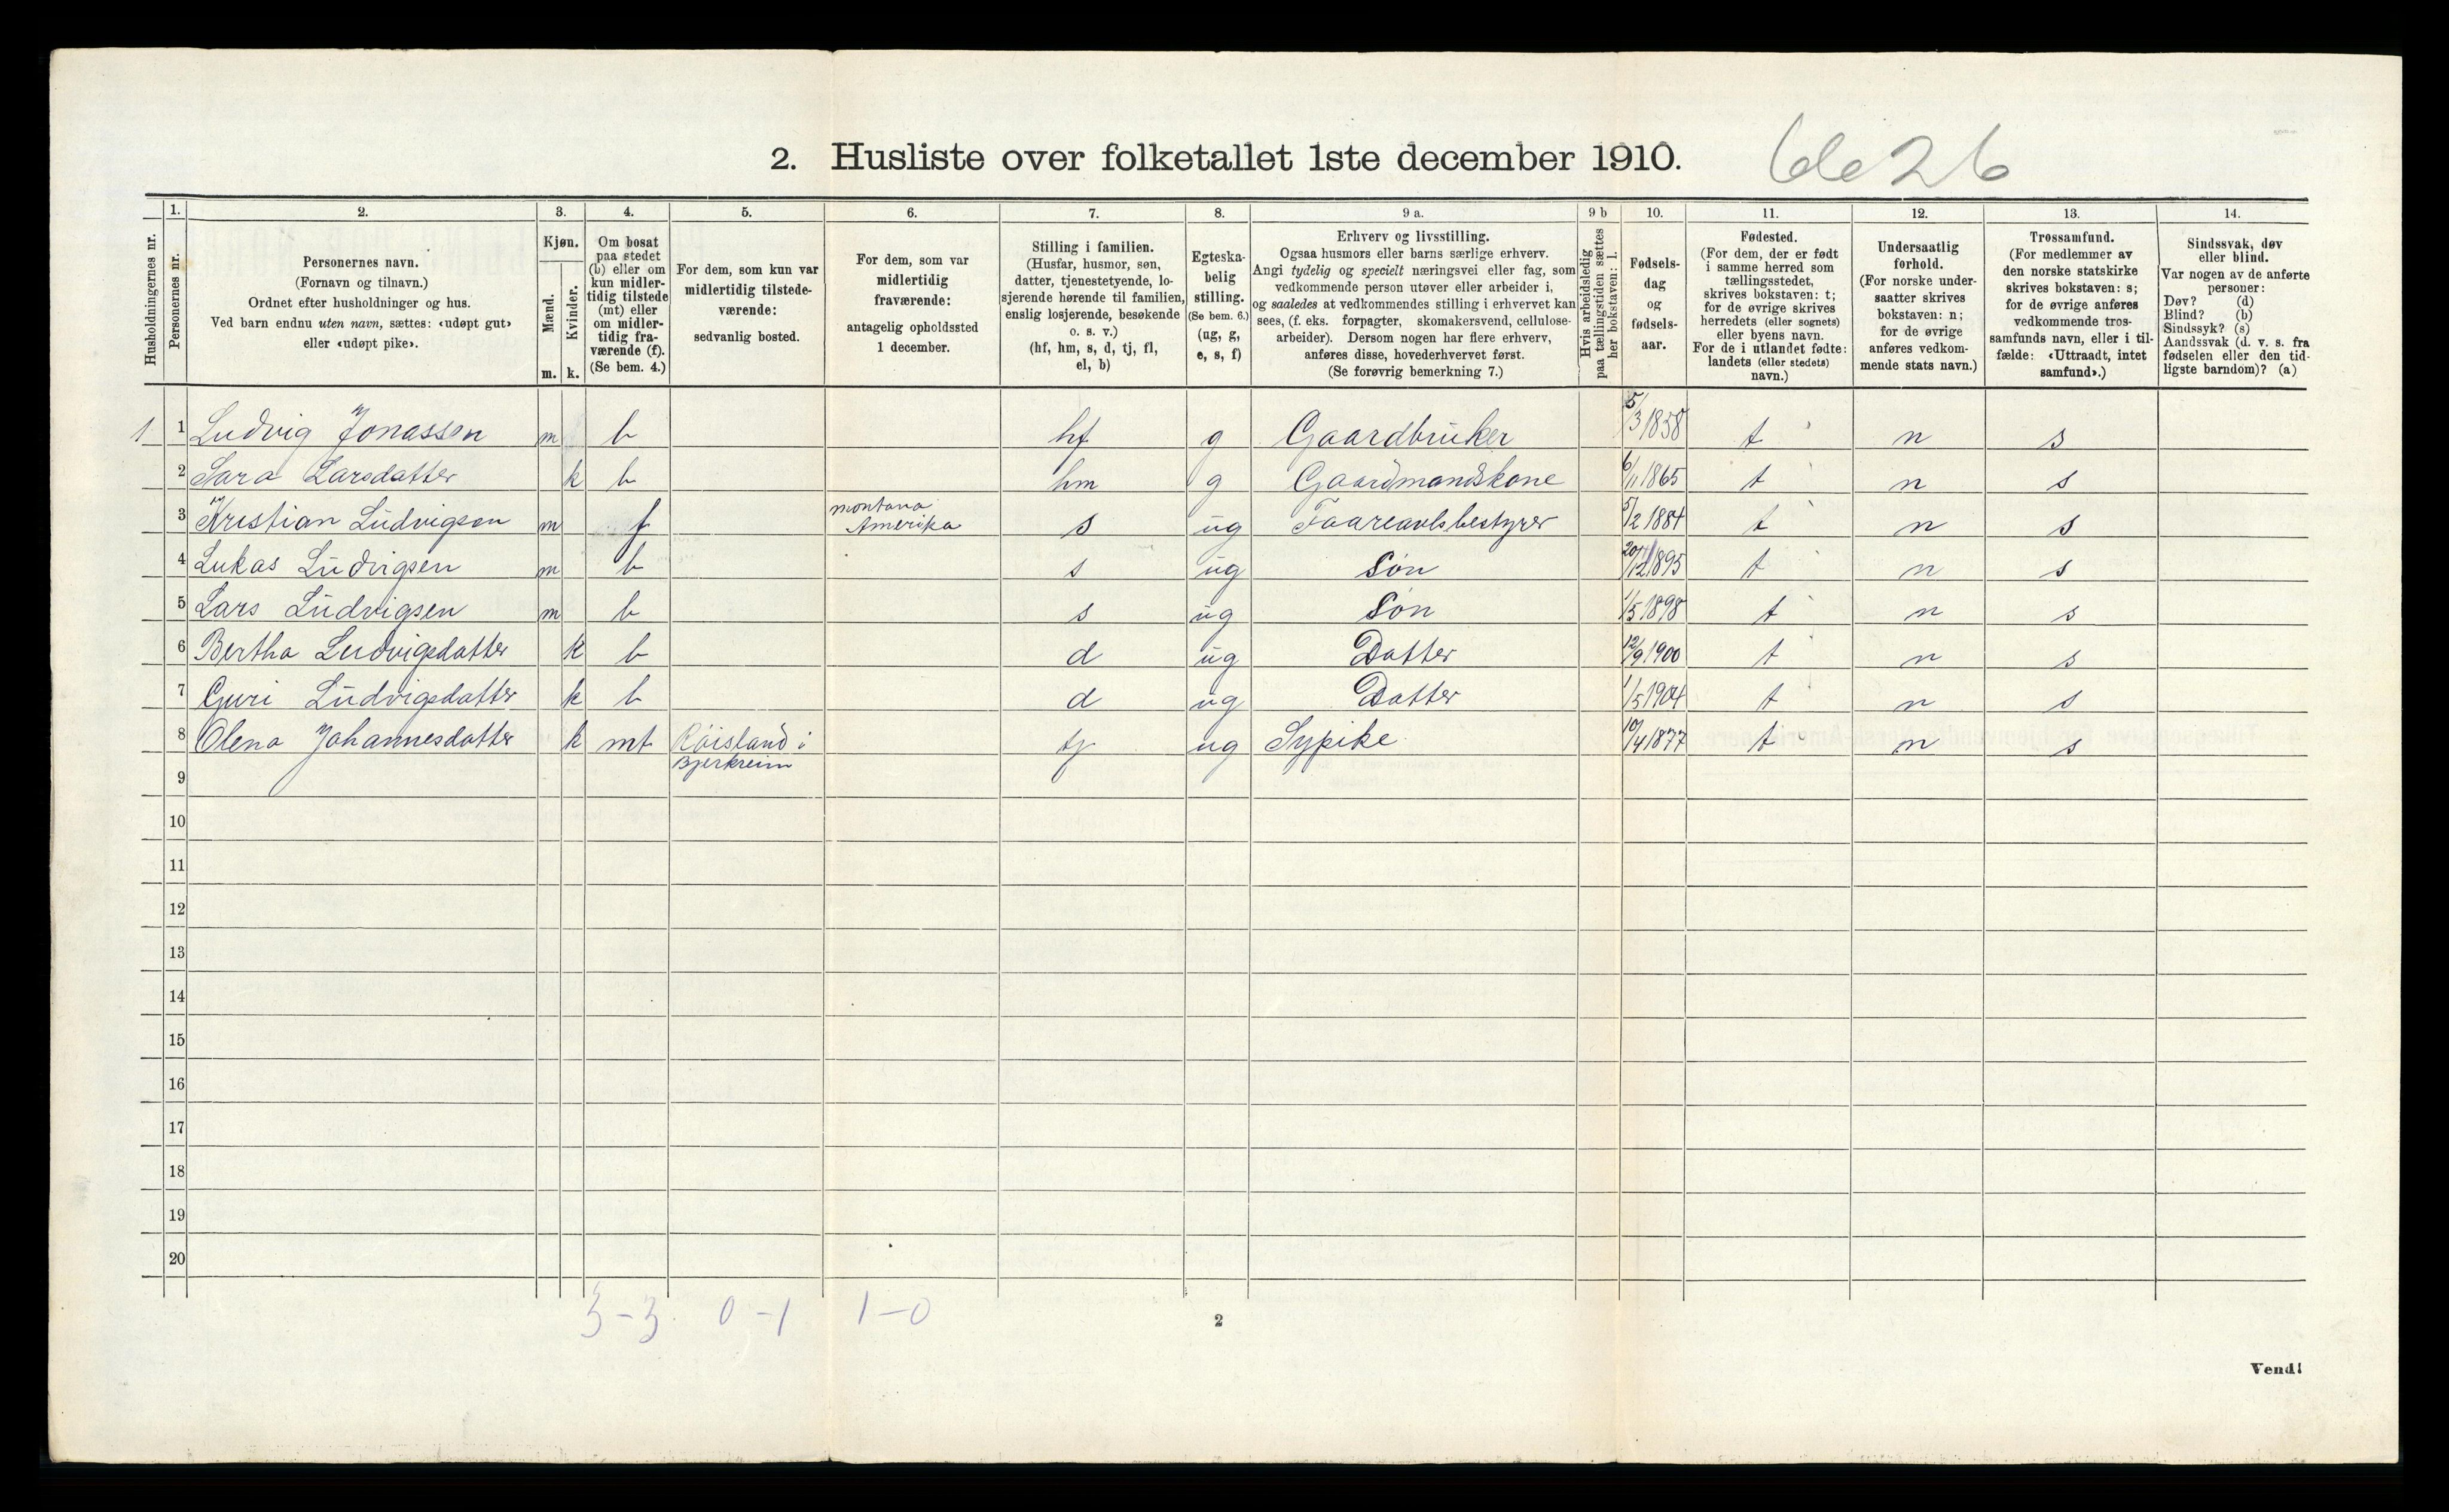 2. Husliste over folketallet 1ste december 1910.
1. 2. 3. 4. 5. 6. 7. 8. 9 a. 9 b 10. 11. 12. 13. 14.
Husholdningernes nr.
Personernes nr.
Personernes navn.
(Fornavn og tilnavn.)
Ordnet efter husholdninger og hus.
Ved barn endnu uten navn, sættes: «udøpt gut»
eller «udøpt pike».
Kjøn.
Mænd.
Kvinder.
m. k.
Om bosat
paa stedet
(b) eller om
kun midler-
tidig tilstede
(mt) eller
om midler-
tidig fra-
værende (f).
(Se bem. 4.)
For dem, som kun var
midlertidig tilstede-
værende:
sedvanlig bosted.
For dem, som var
midlertidig
fraværende:
antagelig opholdssted
1 december.
Stilling i familien.
(Husfar, husmor, søn,
datter, tjenestetyende, lo-
sjerende hørende til familien,
enslig losjerende, besøkende
o. s. v.)
(hf, hm, s, d, tj, fl,
el, b)
Egteska-
belig
stilling.
(Se bem. 6.)
(ug, g,
e, s, f)
Erhverv og livsstilling.
Ogsaa husmors eller barns særlige erhverv.
Angi tydelig og specielt næringsvei eller fag, som
vedkommende person utøver eller arbeider i,
og saaledes at vedkommendes stilling i erhvervet kan
sees, (f. eks. forpagter, skomakersvend, cellulose-
arbeider). Dersom nogen har flere erhverv,
anføres disse, hovederhvervet først.
(Se forøvrig bemerkning 7.)
Hvis arbeidsledig
paa tællingstiden sættes
her bokstaven: l.
Fødsels-
dag
og
fødsels-
aar.
Fødested.
(For dem, der er født
i samme herred som
tællingsstedet,
skrives bokstaven: t;
for de øvrige skrives
herredets (eller sognets)
eller byens navn.
For de i utlandet fødte:
landets (eller stedets)
navn.)
Undersaatlig
forhold.
(For norske under-
saatter skrives
bokstaven: n;
for de øvrige
anføres vedkom-
mende stats navn.)
Trossamfund.
(For medlemmer av
den norske statskirke
skrives bokstaven: s;
for de øvrige anføres
vedkommende tros-
samfunds navn, eller i til-
fælde: «Uttraadt, intet
samfund».)
Sindssvak, døv
eller blind.
Var nogen av de anførte
personer:
Døv? (d)
Blind? (b)
Sindssyk? (s)
Aandssvak (d. v. s. fra
fødselen eller den tid-
ligste barndom)? (a)
1 1 Ludvig Jonassen m b hf g Gaardbruker 5/3 1858 t n s
2 Sara Larsdatter k b hm g Gaardmandskone 6/11 1865 t n s
3 Kristian Ludvigsen m f montana Amerika s ug Faareavlsbestyrer 5/2 1884 t n s
4 Lukas Ludvigsen m b s ug Søn 20/12 1895 t n s
5 Lars Ludvigsen m b s ug Søn 1/5 1898 t n s
6 Bertha Ludvigsdatter k b d ug Datter 12/9 1900 t n s
7 Guri Ludvigsdatter k b d ug Datter 1/5 1904 t n s
8 Olena Johannesdatter k mt Röisland i Bjerkreim tj ug Sypike 10/4 1877 t n s
9
10
11
12
13
14
15
16
17
18
19
20
3-3 0-1 1-0
2
Vend!